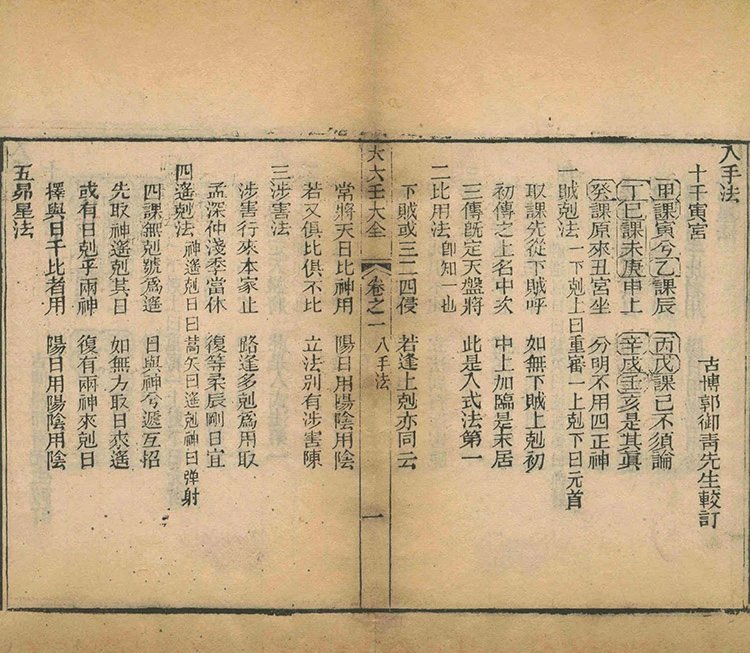 入手法
十干寅宮 古博郭御青先生較訂
甲課寅兮乙課辰 丙戊課巳不須論
丁巳課未庚申上 辛戌壬亥是其眞
癸課原來丑宮坐 分明不用四正神
一賊剋法 一下剋上曰重審一上剋下曰元首
取課先從下賊呼 如無下賊上剋初
初傳之上名中次 中上加臨是末居
三傳旣定天盤將 此是入式法第一
二比用法 卽知一也
下賊或三二四侵 若逢上剋亦同云
大六壬大全 卷之一 入手法 一
常將天日比神用 陽日用陽陰用陰
若又俱比俱不比 立法別有涉害陳
三涉害法
涉害行來本家止 路逢多剋爲用取
孟深仲淺季當休 復等柔辰剛日宜
四遙剋法 神遙剋日曰蒿矢曰遙剋神曰弹射
四課無剋號爲遙 日與神兮遞互招
先取神遙剋其日 如無方取日來遙
或有日剋乎兩神 復有兩神來剋日
擇與日干比者用 陽日用陽陰用陰
五昴星法